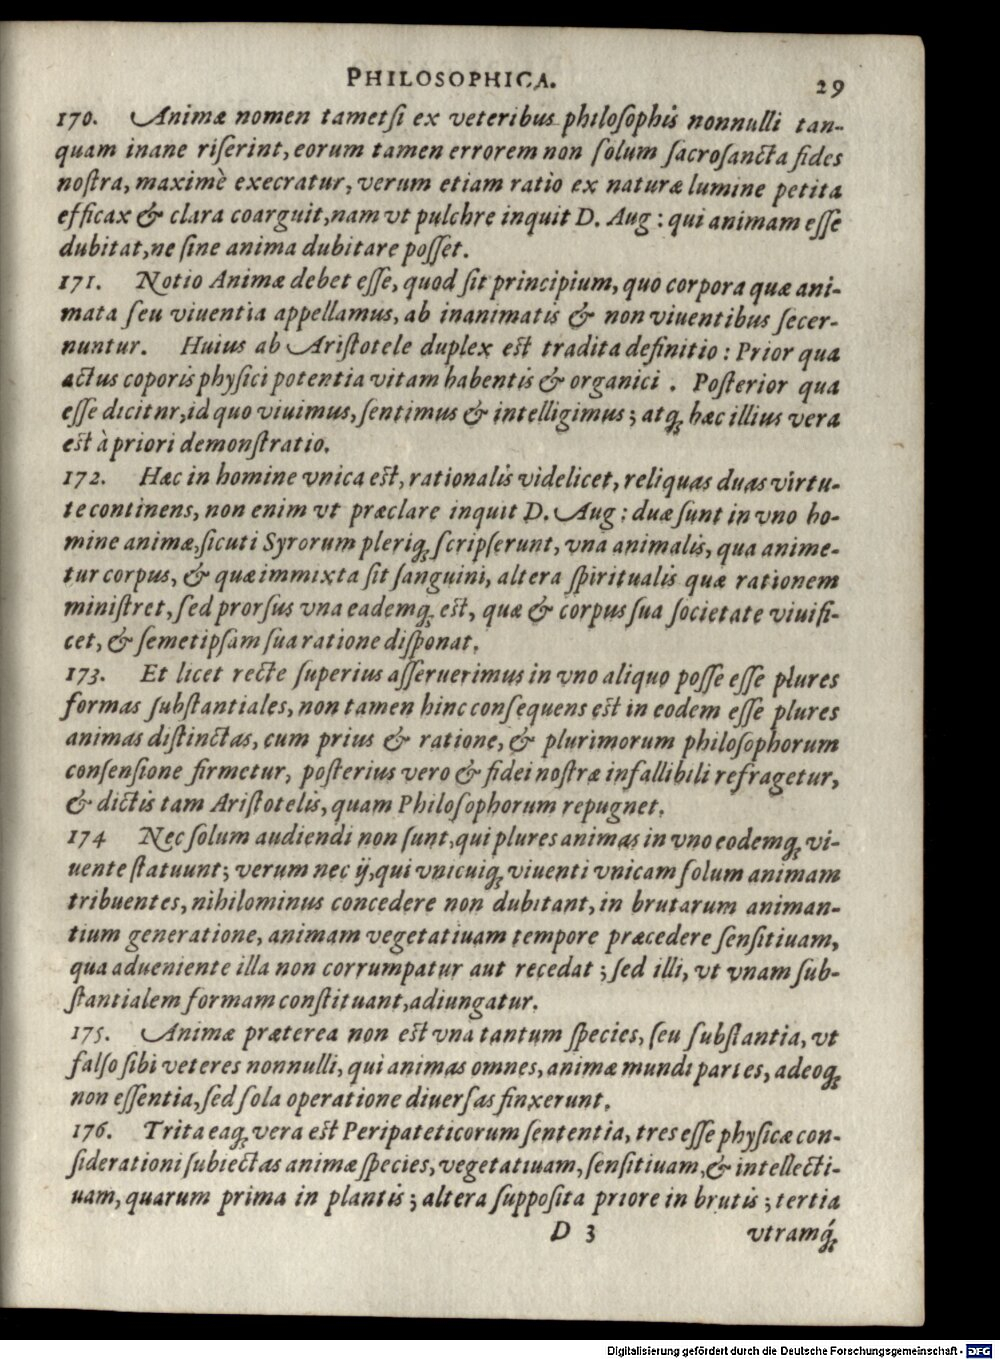 PHILOSOPHICA. 29
170. Animæ nomen tametſi ex veteribus philoſophis nonnulli tan-
quam inane riſerint, eorum tamen errorem non ſolum ſacroſancta fides
noſtra, maximè execratur, verum etiam ratio ex naturæ lumine petita
efficax & clara coarguit, nam vt pulchre inquit D. Aug: qui animam eſſe
dubitat, ne ſine anima dubitare poſſet.
171. Notio Animæ debet eſſe, quod ſit principium, quo corpora quæ ani-
mata ſeu viuentia appellamus, ab inanimatis & non viuentibus ſecer-
nuntur. Huius ab Ariſtotele duplex eſt tradita definitio: Prior qua
actus coporis phyſici potentia vitam habentis & organici. Poſterior qua
eſſe dicitnr, id quo viuimus, ſentimus & intelligimus; atq; hæc illius vera
eſt à priori demonſtratio.
172. Hæc in homine vnica eſt, rationalis videlicet, reliquas duas virtu-
te continens, non enim vt præclare inquit D. Aug: duæ ſunt in vno ho-
mine animæ, ſicuti Syrorum pleriq; ſcripſerunt, vna animalis, qua anime-
tur corpus, & quæ immixta ſit ſanguini, altera ſpiritualis quæ rationem
miniſtret, ſed prorſus vna eademq; eſt, quæ & corpus ſua ſocietate viuifi-
cet, & ſemetipſam ſua ratione diſponat.
173. Et licet recte ſuperius aſſeruerimus in vno aliquo poſſe eſſe plures
formas ſubſtantiales, non tamen hinc conſequens eſt in eodem eſſe plures
animas diſtinctas, cum prius & ratione, & plurimorum philoſophorum
conſenſione firmetur, poſterius vero & fidei noſtræ infallibili refragetur,
& dictis tam Ariſtotelis, quam Philoſophorum repugnet.
174 Nec ſolum audiendi non ſunt, qui plures animas in vno eodemq; vi-
uente ſtatuunt; verum nec ij, qui vnicuiq; viuenti vnicam ſolum animam
tribuentes, nihilominus concedere non dubitant, in brutarum animan-
tium generatione, animam vegetatiuam tempore præcedere ſenſitiuam,
qua adueniente illa non corrumpatur aut recedat; ſed illi, vt vnam ſub-
ſtantialem formam conſtituant, adiungatur.
175. Animæ præterea non eſt vna tantum ſpecies, ſeu ſubſtantia, vt
falſo ſibi veteres nonnulli, qui animas omnes, animæ mundi partes, adeoq;
non eſſentia, ſed ſola operatione diuerſas finxerunt.
176. Trita eaq; vera eſt Peripateticorum ſententia, tres eſſe phyſicæ con-
ſiderationi ſubiectas animæ ſpecies, vegetatiuam, ſenſitiuam, & intellecti-
uam, quarum prima in plantis; altera ſuppoſita priore in brutis; tertia
D 3 vtramq́;
Digitalisierung gefördert durch die Deutsche Forschungsgemeinschaft - DFG